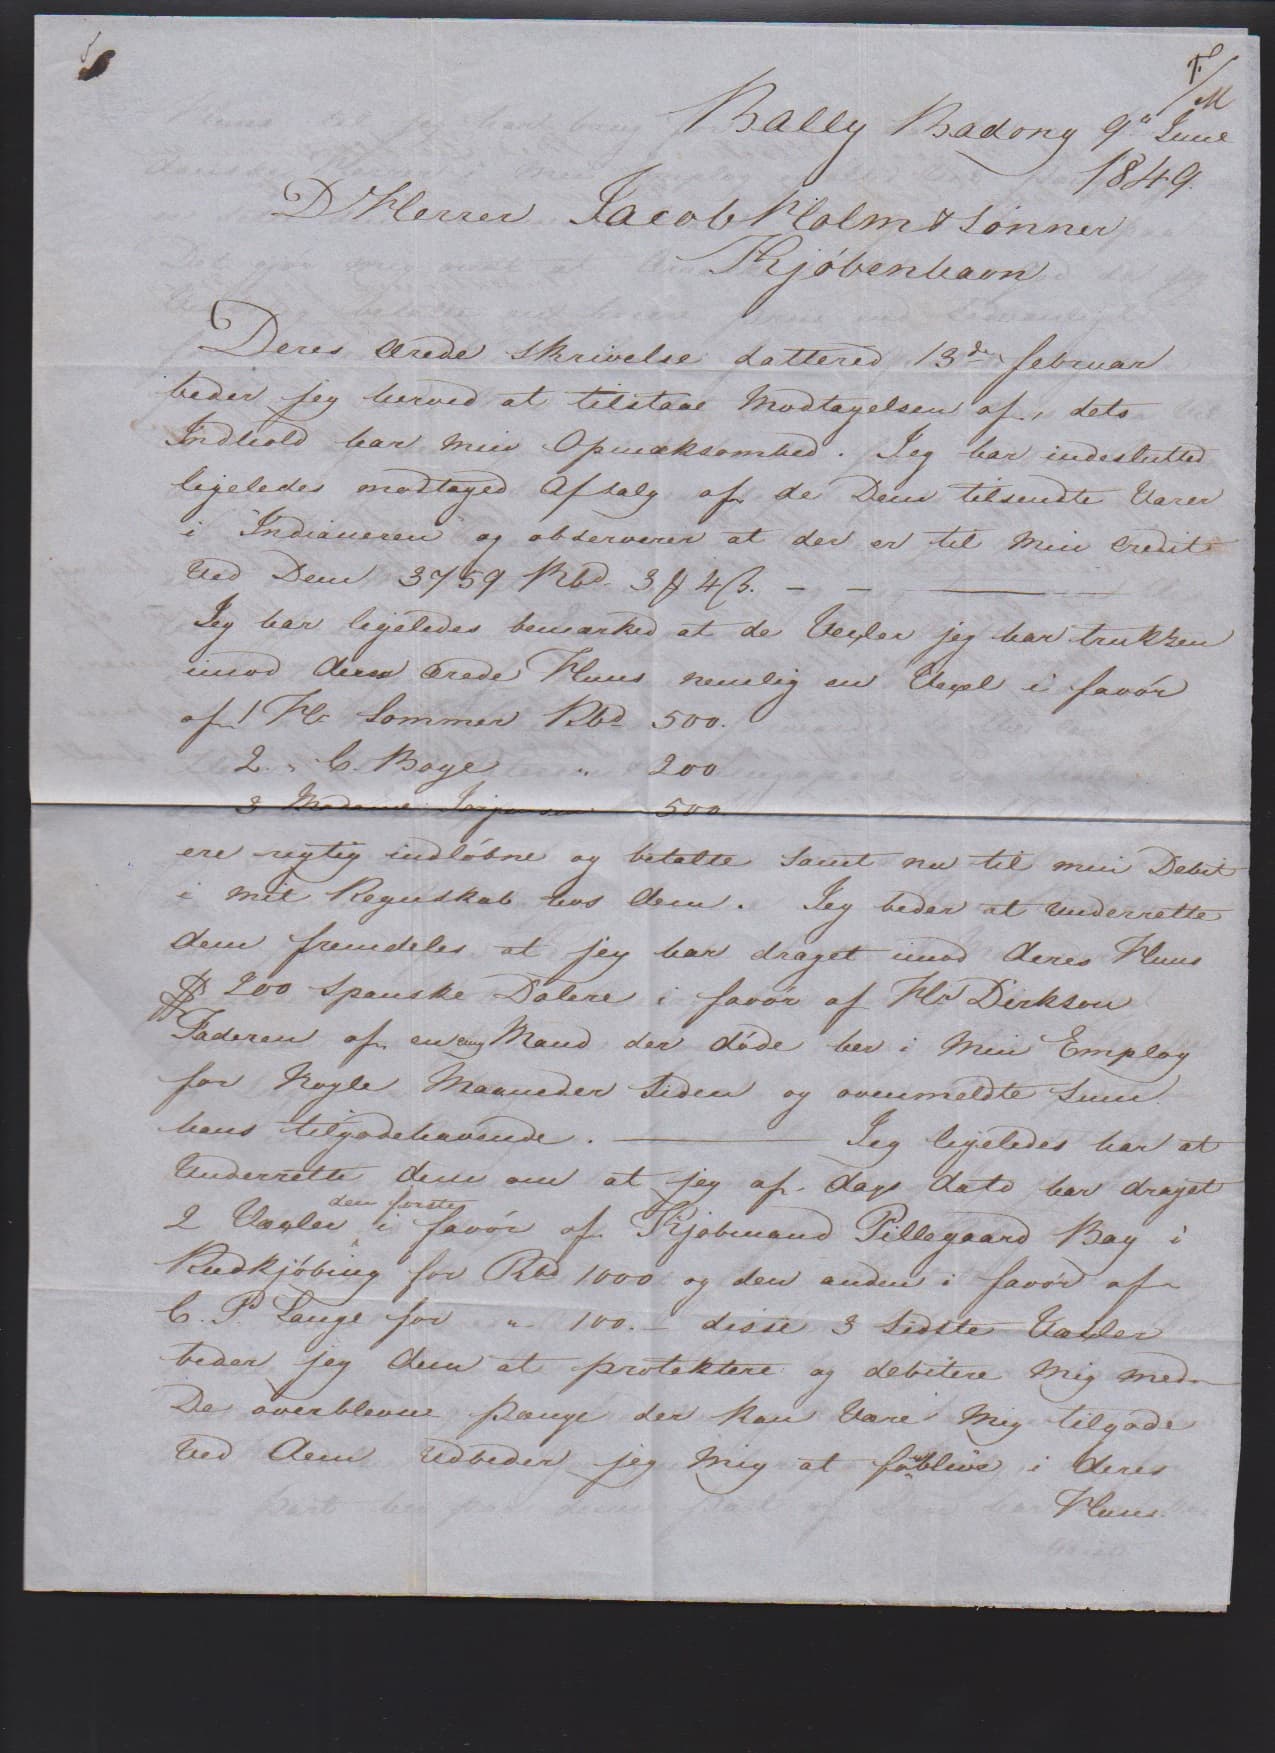 F/M
Bally Badong 9d June
1849.
D'Herrer Jacob Holm & Sønner
Kjøbenhavn
Deres ærede skrivelse dattered 13de februar
beder jeg herved at tilstaae Modtagelsen af, dets
Indhold har min Opmæksomhed. Jeg har indeslutted
ligeledes modtaged Afsalg af de Dem tilsendte Varer
i "Indianeren" og observerer at der er til min credit
Ved Dem 3759 Rbd. 3 ꝟ 4 ß. — —
Jeg har ligeledes bemærked at de Vexler jeg har trukken
imod deres ærede Huus nemlig en Vexel i favør
af 1 Hr Sommer Rbd 500.
2 " C. Boye " 200
3 Madame Jørgensen 500.
ere rigtig indløbne og betalte samt nu til min Debit
i mit Regnskab hos dem. Jeg beder at underrette
dem fremdeles at jeg har draget imod deres Huus
$ 200 Spanske Dalere i favør af Hr Dirksen
Faderen af en ung Mand der døde her i Min Employ
for Nogle Maaneder Siden og ovenmeldte Sum
hans tilgodehavende. — Jeg ligeledes har at
Underrette dem om at jeg af dags dato har draget
2 Vexler den første i favør af Kjøbmand Pillegaard Bay i
Rudkjøbing for Rbd 1000 og den anden i favør af
C. P. Lange for " 100. — disse 3 Sidste Vexler
beder jeg dem at protektere og debitere Mig med
De overblevne penge der kan Være Mig tilgode
Ved dem udbeder jeg Mig at forblive i deres
Huus.